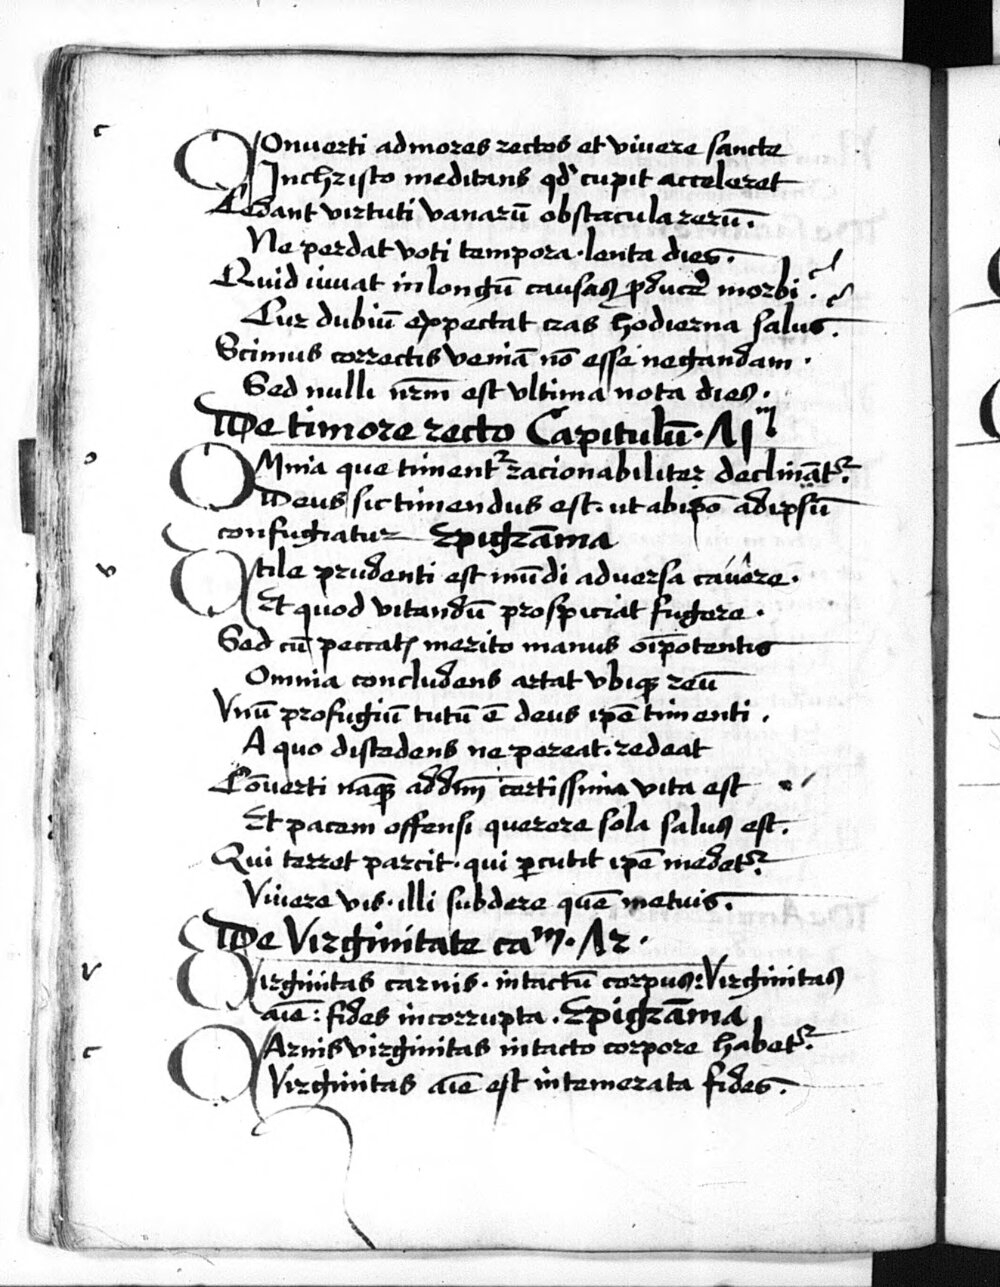 c Onuerti ad mores rectos et viuere sancte
In christo meditans qd' cupit acceleret
Cedant virtuti vanarū obstacula rerū.
Ne perdat voti tempora. lenta dies.
Quid iuuat in longū causas ꝓducē morbi.
Cur dubiū expectat cras hodierna salus.
Scimus correctis veniā nō esse negandam.
Sed nulli nrm̄ est vltima nota dies.
De timore recto Capitulū.
o Mnia que timentᷣ racionabiliter declināt᷑.
Deus sic timendus est. ut ab ipō ad ipsū
confugiatur Epigrāma
v tile prudenti est mūdi aduersa cauēre.
Et quod vitandū prospiciat fugere.
Sed cū peccatꝭ merito manus oīpotentis
Omnia concludens artat vbiqꝫ reū
Vnū profugiū tutū ē deus ipē timenti.
A quo discedens ne pereat. redeat
Cōuerti naqꝫ ad dn̄m certissima vita est
Et pacem offensi querere sola salus est.
Qui terret parcit. qui ꝑcutit ipē medet᷑.
Viuere vis. illi subdere quē metuis.
De Virginitate caᵐ.
v irginitas carnis. intactū corpus: Virginitas
aīe: fides incorrupta. Epigrāma
c Arnis virginitas intacto corpore habet᷑.
Virginitas aīe est intemerata fides.